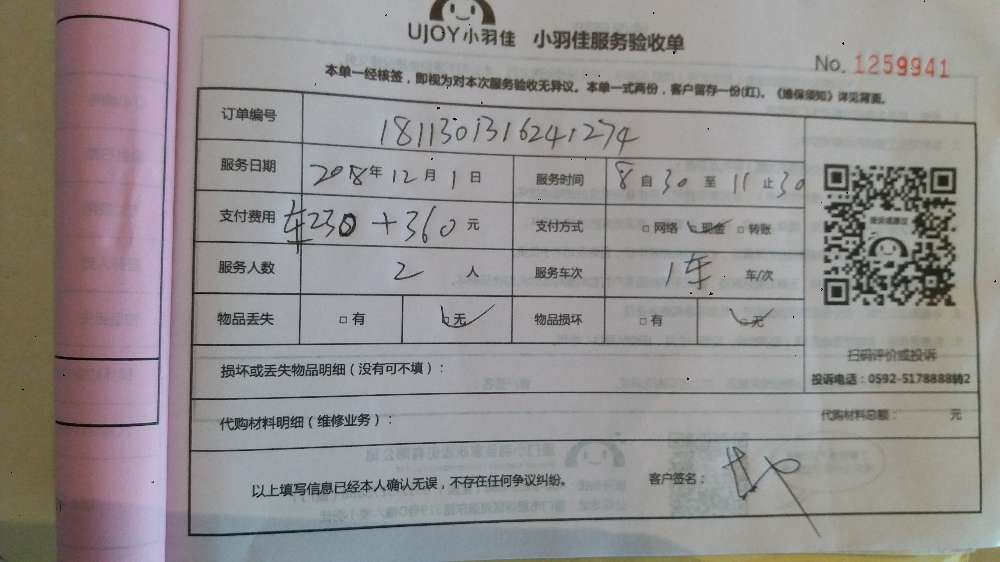 UJOY小羽佳 小羽佳服务验收单
No. 1259941
本单一经核签，即视为对本次服务验收无异议。本单一式两份，客户留存一份(红)。《维保须知》详见背面。
订单编号 1811301316241274
服务日期 2018年12月1日 服务时间 8自30至11止30
支付费用 车230+360元 支付方式 □网络 □现金 □转账
服务人数 2人 服务车次 1车 车/次
物品丢失 □有 □无 物品损坏 □有 □无
扫码评价或投诉
投诉电话：0592-5178888转2
损坏或丢失物品明细（没有可不填）：
代购材料明细（维修业务）： 代购材料总额： 元
以上填写信息已经本人确认无误，不存在任何争议纠纷。 客户签名：